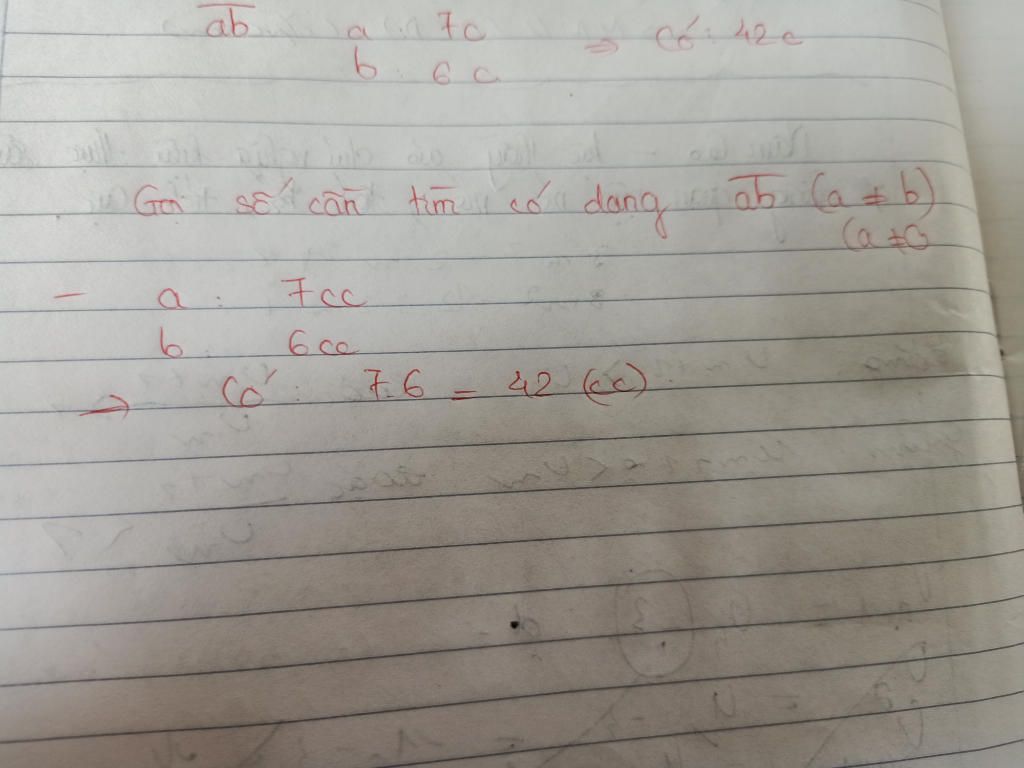 ab a : 7c
b : 6c ⇒ Có : 42c
Gọi số cần tìm có dạng ab (a ≠ b)
(a ≠ 0
- a : 7cc
b : 6cc
→ Có : 7.6 = 42 (cc)